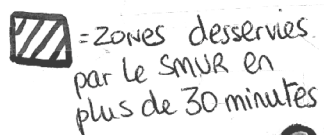 = ZONES desservies
par le SMUR en
plus de 30 minutes